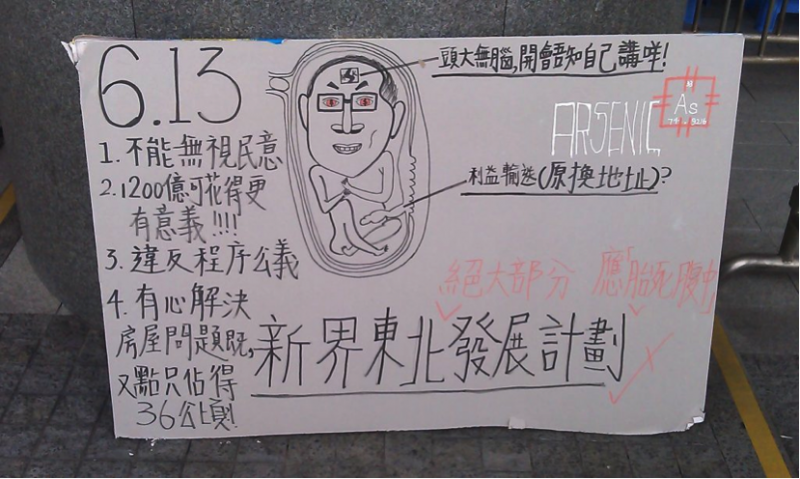 6.13
頭大無腦,開會唔知自己講咩!
ARSENIC
As
1. 不能無視民意
2. 1200億可花得更
有意義!!!!
利益輸送(原換地址)?
3. 違反程序公義
絕大部分 應「胎死腹中」
4. 有心解決
房屋問題既,
又點只佔得
36公頃!
新界東北發展計劃